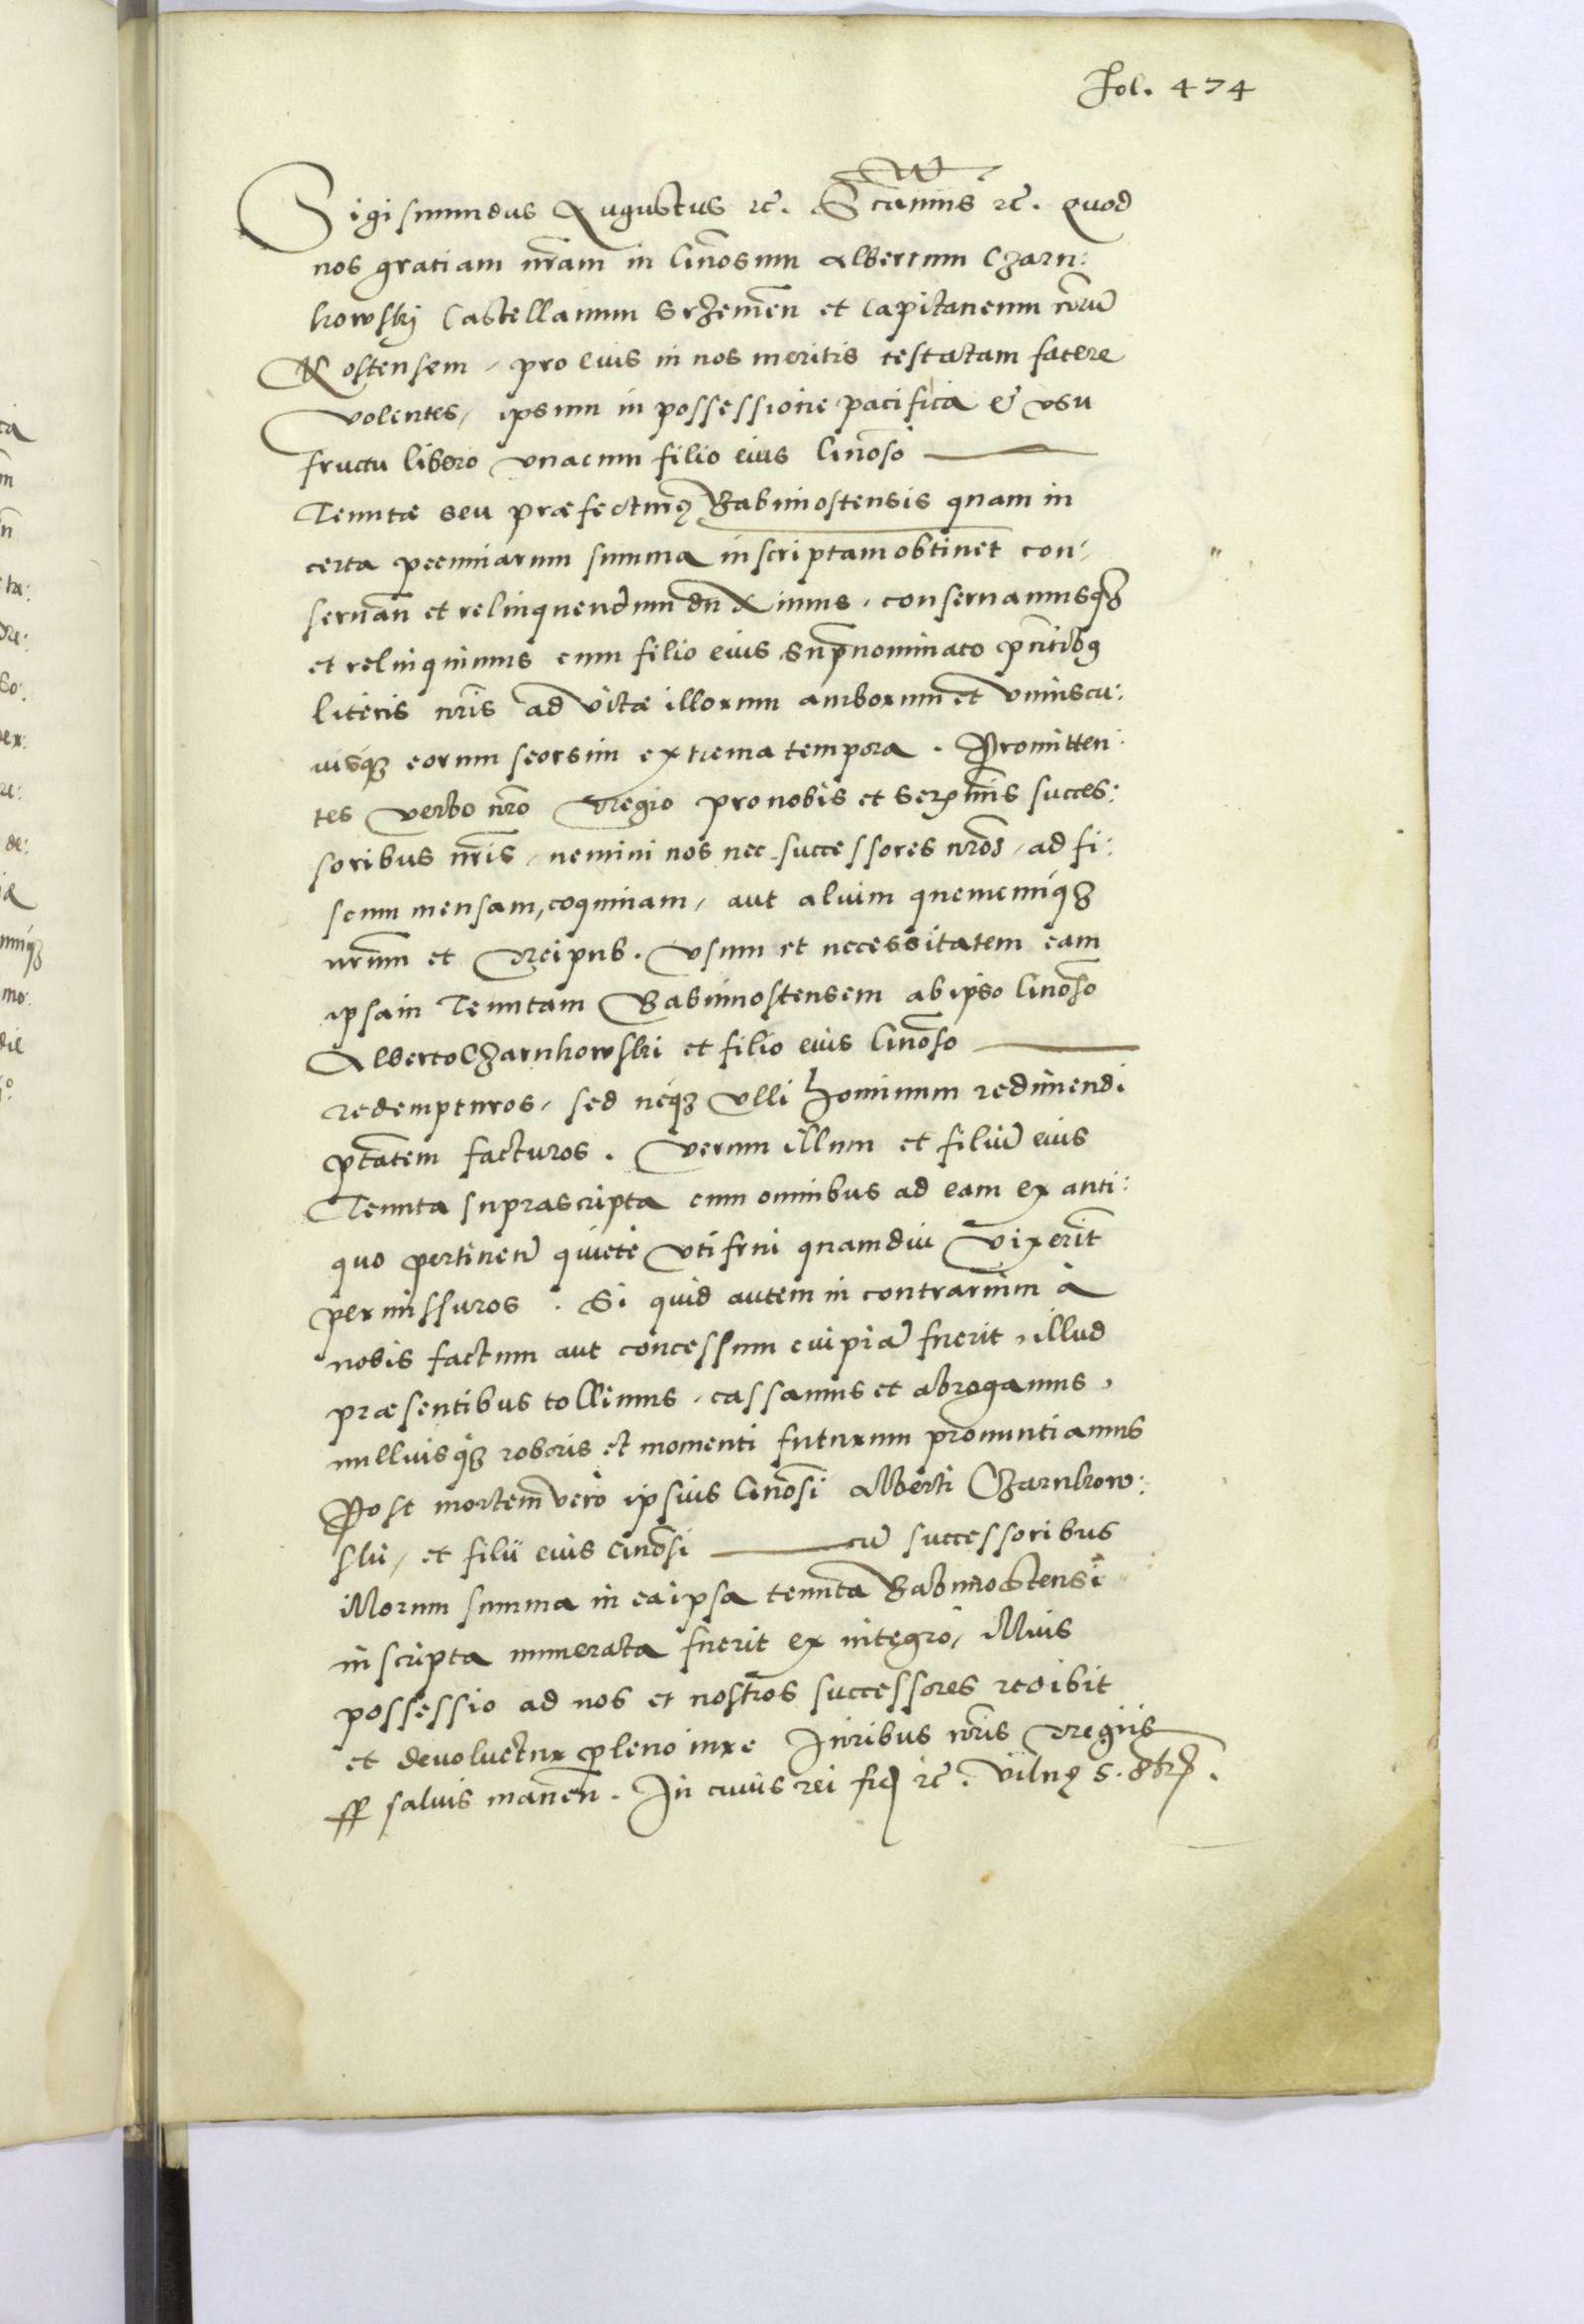 Fol. 474
Sigismundus Augustus etc. Scimus etc. Quod
nos gratiam nr̄am in Gn̄osum Albertum Czarn:
kowskj Castellanum Srzemen̄ et Capitaneum nr̄um
Kostensem, pro eius in nos meritis testatam facere
volentes, ipsum in possessione pacifica & usu
fructu libero unacum filio eius Gn̄oso ———
Tenutæ seu præfecturę Babimostensis quam in
certa pecuniarum summa inscriptam obtinet con:
seruan̄ et relinquendum duximus, conseruamusq3
et relinquimus cum filio eius supranominato pn̄tibus
literis nr̄is ad vitæ illorum amborum et vniuscu:
iusq3 eorum seorsim extrema tempora. Promitten:
tes verbo nr̄o Regio pro nobis et Serenmis succes:
soribus nr̄is, nemini nos nec successores nr̄os, ad fi:
scum mensam, coquinam, aut alium quemcunq3
nr̄um et Reipub. vsum et necessitatem eam
ipsam Tenutam Babimostensem ab ipso Gn̄oso
Alberto Czarnkowski et filio eius Gn̄oso ———
redempturos, sed neq3 vlli hominum redimendi
ptātem facturos. Verum illum et filiū eius
Tenuta suprascripta cum omnibus ad eam ex anti:
quo pertinen̄ quiete vti frui quamdiu vixerint
permissuros. Si quid autem in contrarium à
nobis factum aut concessum cuipiā fuerit, illud
præsentibus tollimus, cassamus et abrogamus,
nulliusq3 roboris et momenti futurum pronuntiamus
Post mortem vero ipsius Gn̄osi Alberti Czarnkow:
ski, et filii eius Gn̄osi ——— cū successoribus
illorum summa in ea ipsa tenuta Babimostensi
inscripta numerata fuerit ex integro, illius
possessio ad nos et nostros successores redibit
et devoluetur pleno iure Iuribus nr̄is Regiis
salvis manen̄. In cuius rei fid etc. Vilnę 5.